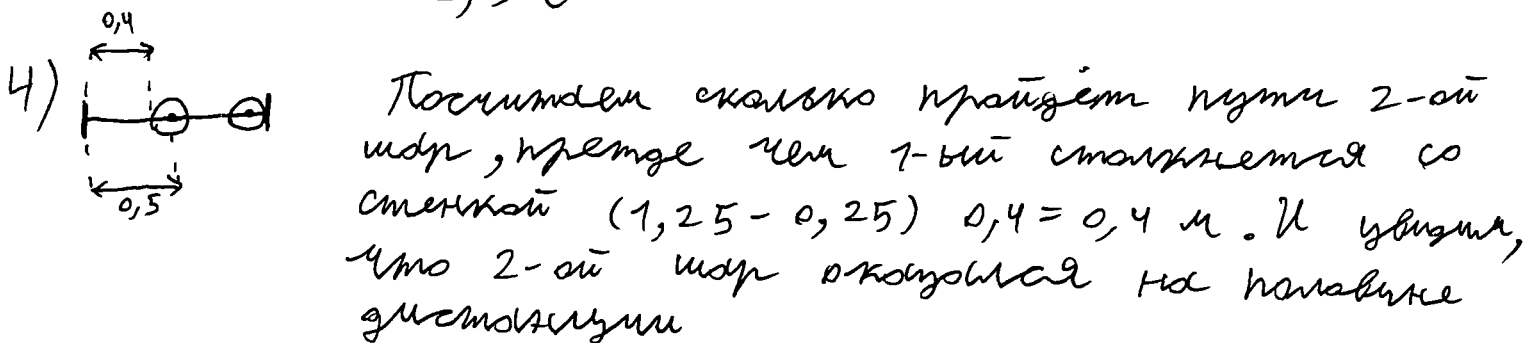 0,4
4)
0,5
Посчитаем сколько пройдём пути 2-ой
шар, прежде чем 1-ый столкнется со
стенкой (1,25 - 0,25) 0,4 = 0,4 м. И увидим,
что 2-ой шар оказался на половине
дистанции